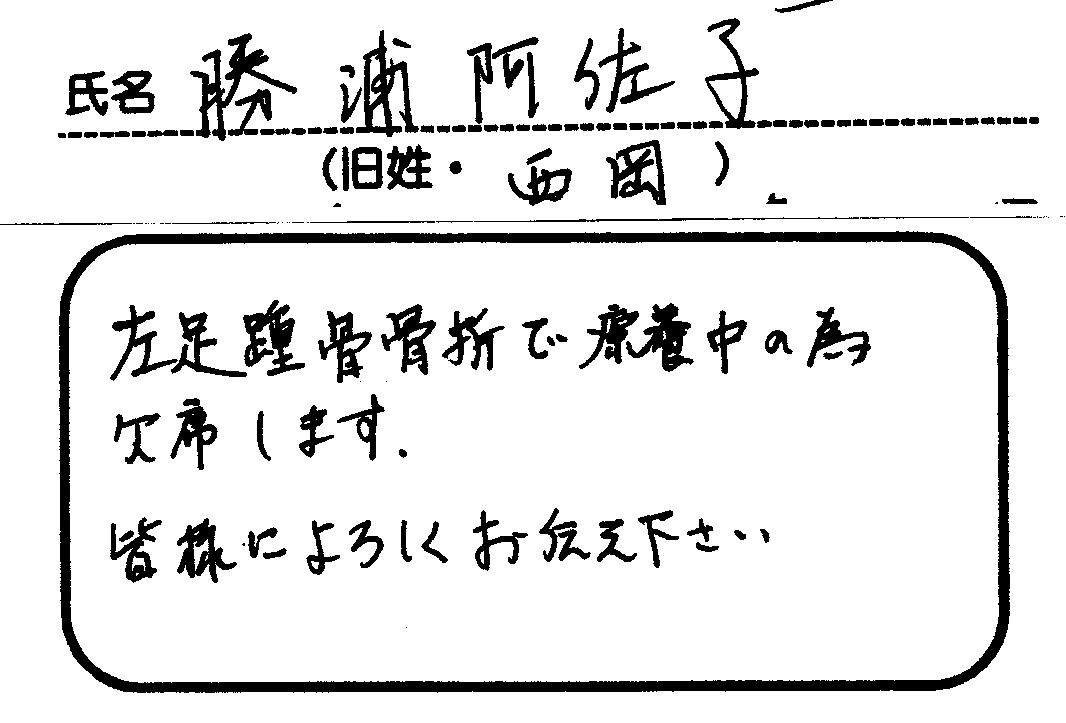 氏名 勝浦阿佐子
(旧姓・西岡)
左足踵骨骨折で療養中の為
欠席します.
皆様によろしくお伝え下さい